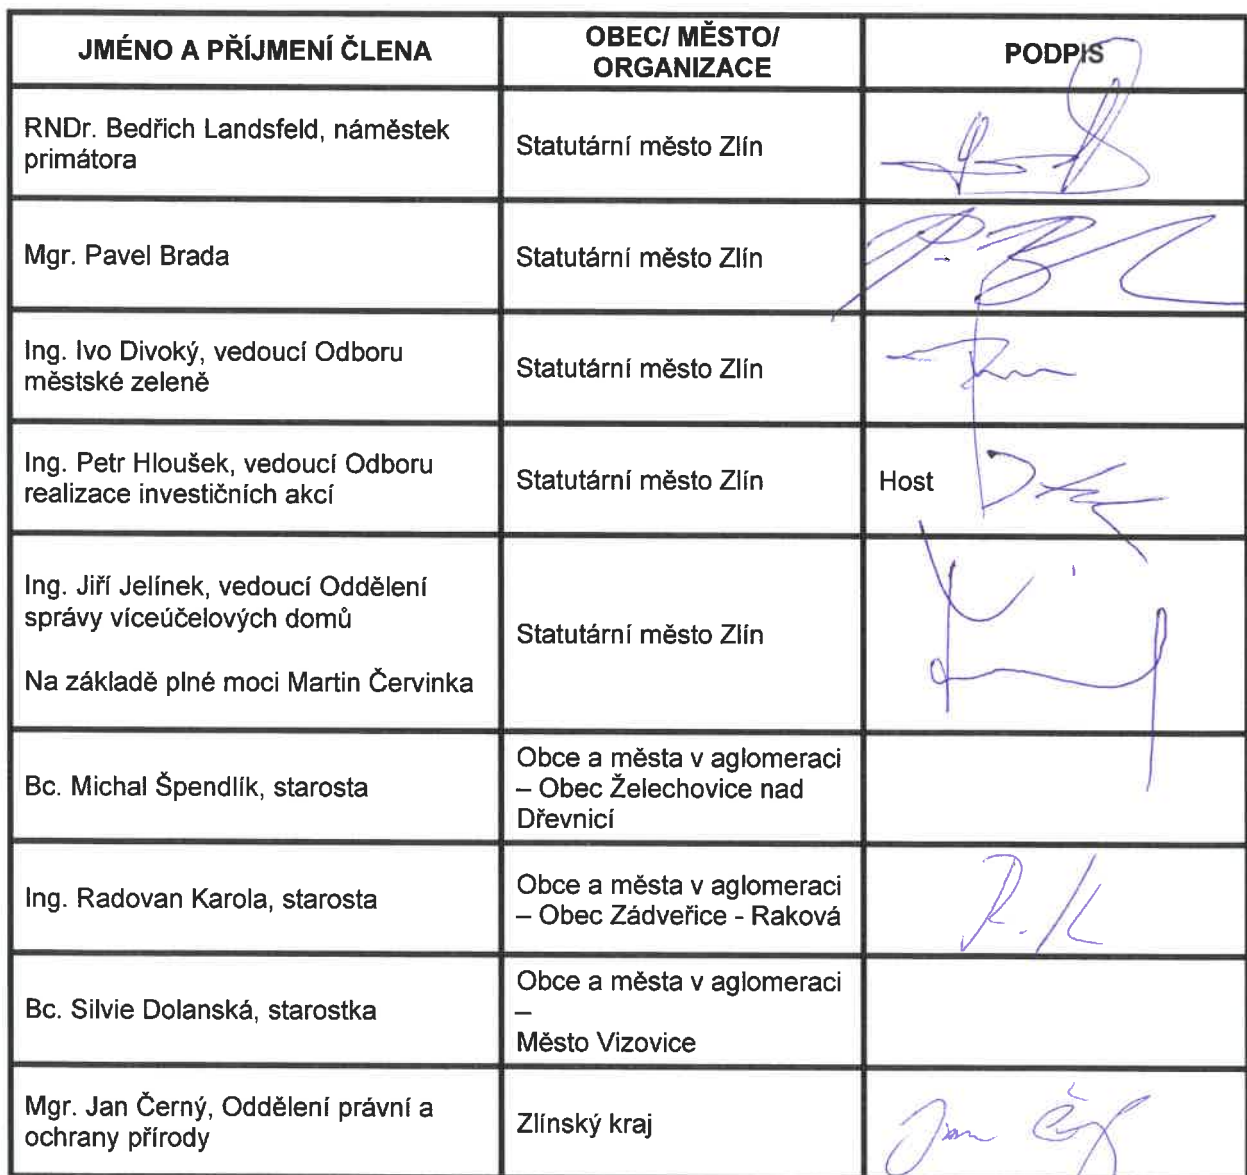 JMÉNO A PŘÍJMENÍ ČLENA
OBEC/ MĚSTO/
ORGANIZACE
PODPIS
RNDr. Bedřich Landsfeld, náměstek
primátora
Statutární město Zlín
Mgr. Pavel Brada
Statutární město Zlín
Ing. Ivo Divoký, vedoucí Odboru
městské zeleně
Statutární město Zlín
Ing. Petr Hloušek, vedoucí Odboru
realizace investičních akcí
Statutární město Zlín
Host
Ing. Jiří Jelínek, vedoucí Oddělení
správy víceúčelových domů
Na základě plné moci Martin Červinka
Statutární město Zlín
Bc. Michal Špendlík, starosta
Obce a města v aglomeraci
– Obec Želechovice nad
Dřevnicí
Ing. Radovan Karola, starosta
Obce a města v aglomeraci
– Obec Zádveřice - Raková
R. K
Bc. Silvie Dolanská, starostka
Obce a města v aglomeraci
–
Město Vizovice
Mgr. Jan Černý, Oddělení právní a
ochrany přírody
Zlínský kraj
Jan